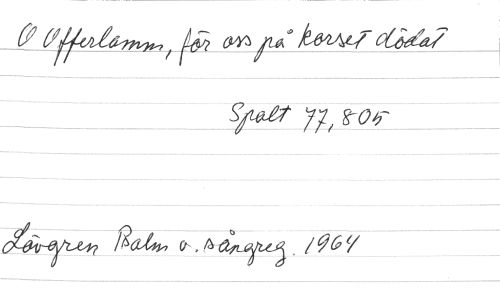 O Offerlamm, för oss på korset dödat
Spalt 77, 805
Lövgren Psalm o. sångreg. 1964